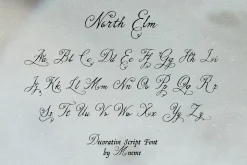 North Elm
Aa Bb Cc Dd Ee Ff Gg Hh Ii
Jj Kk Ll Mm Nn Oo Pp Qq Rr
Ss Tt Uu Vv Ww Xx Yy Zz
Decorative Script Font
by Mueme